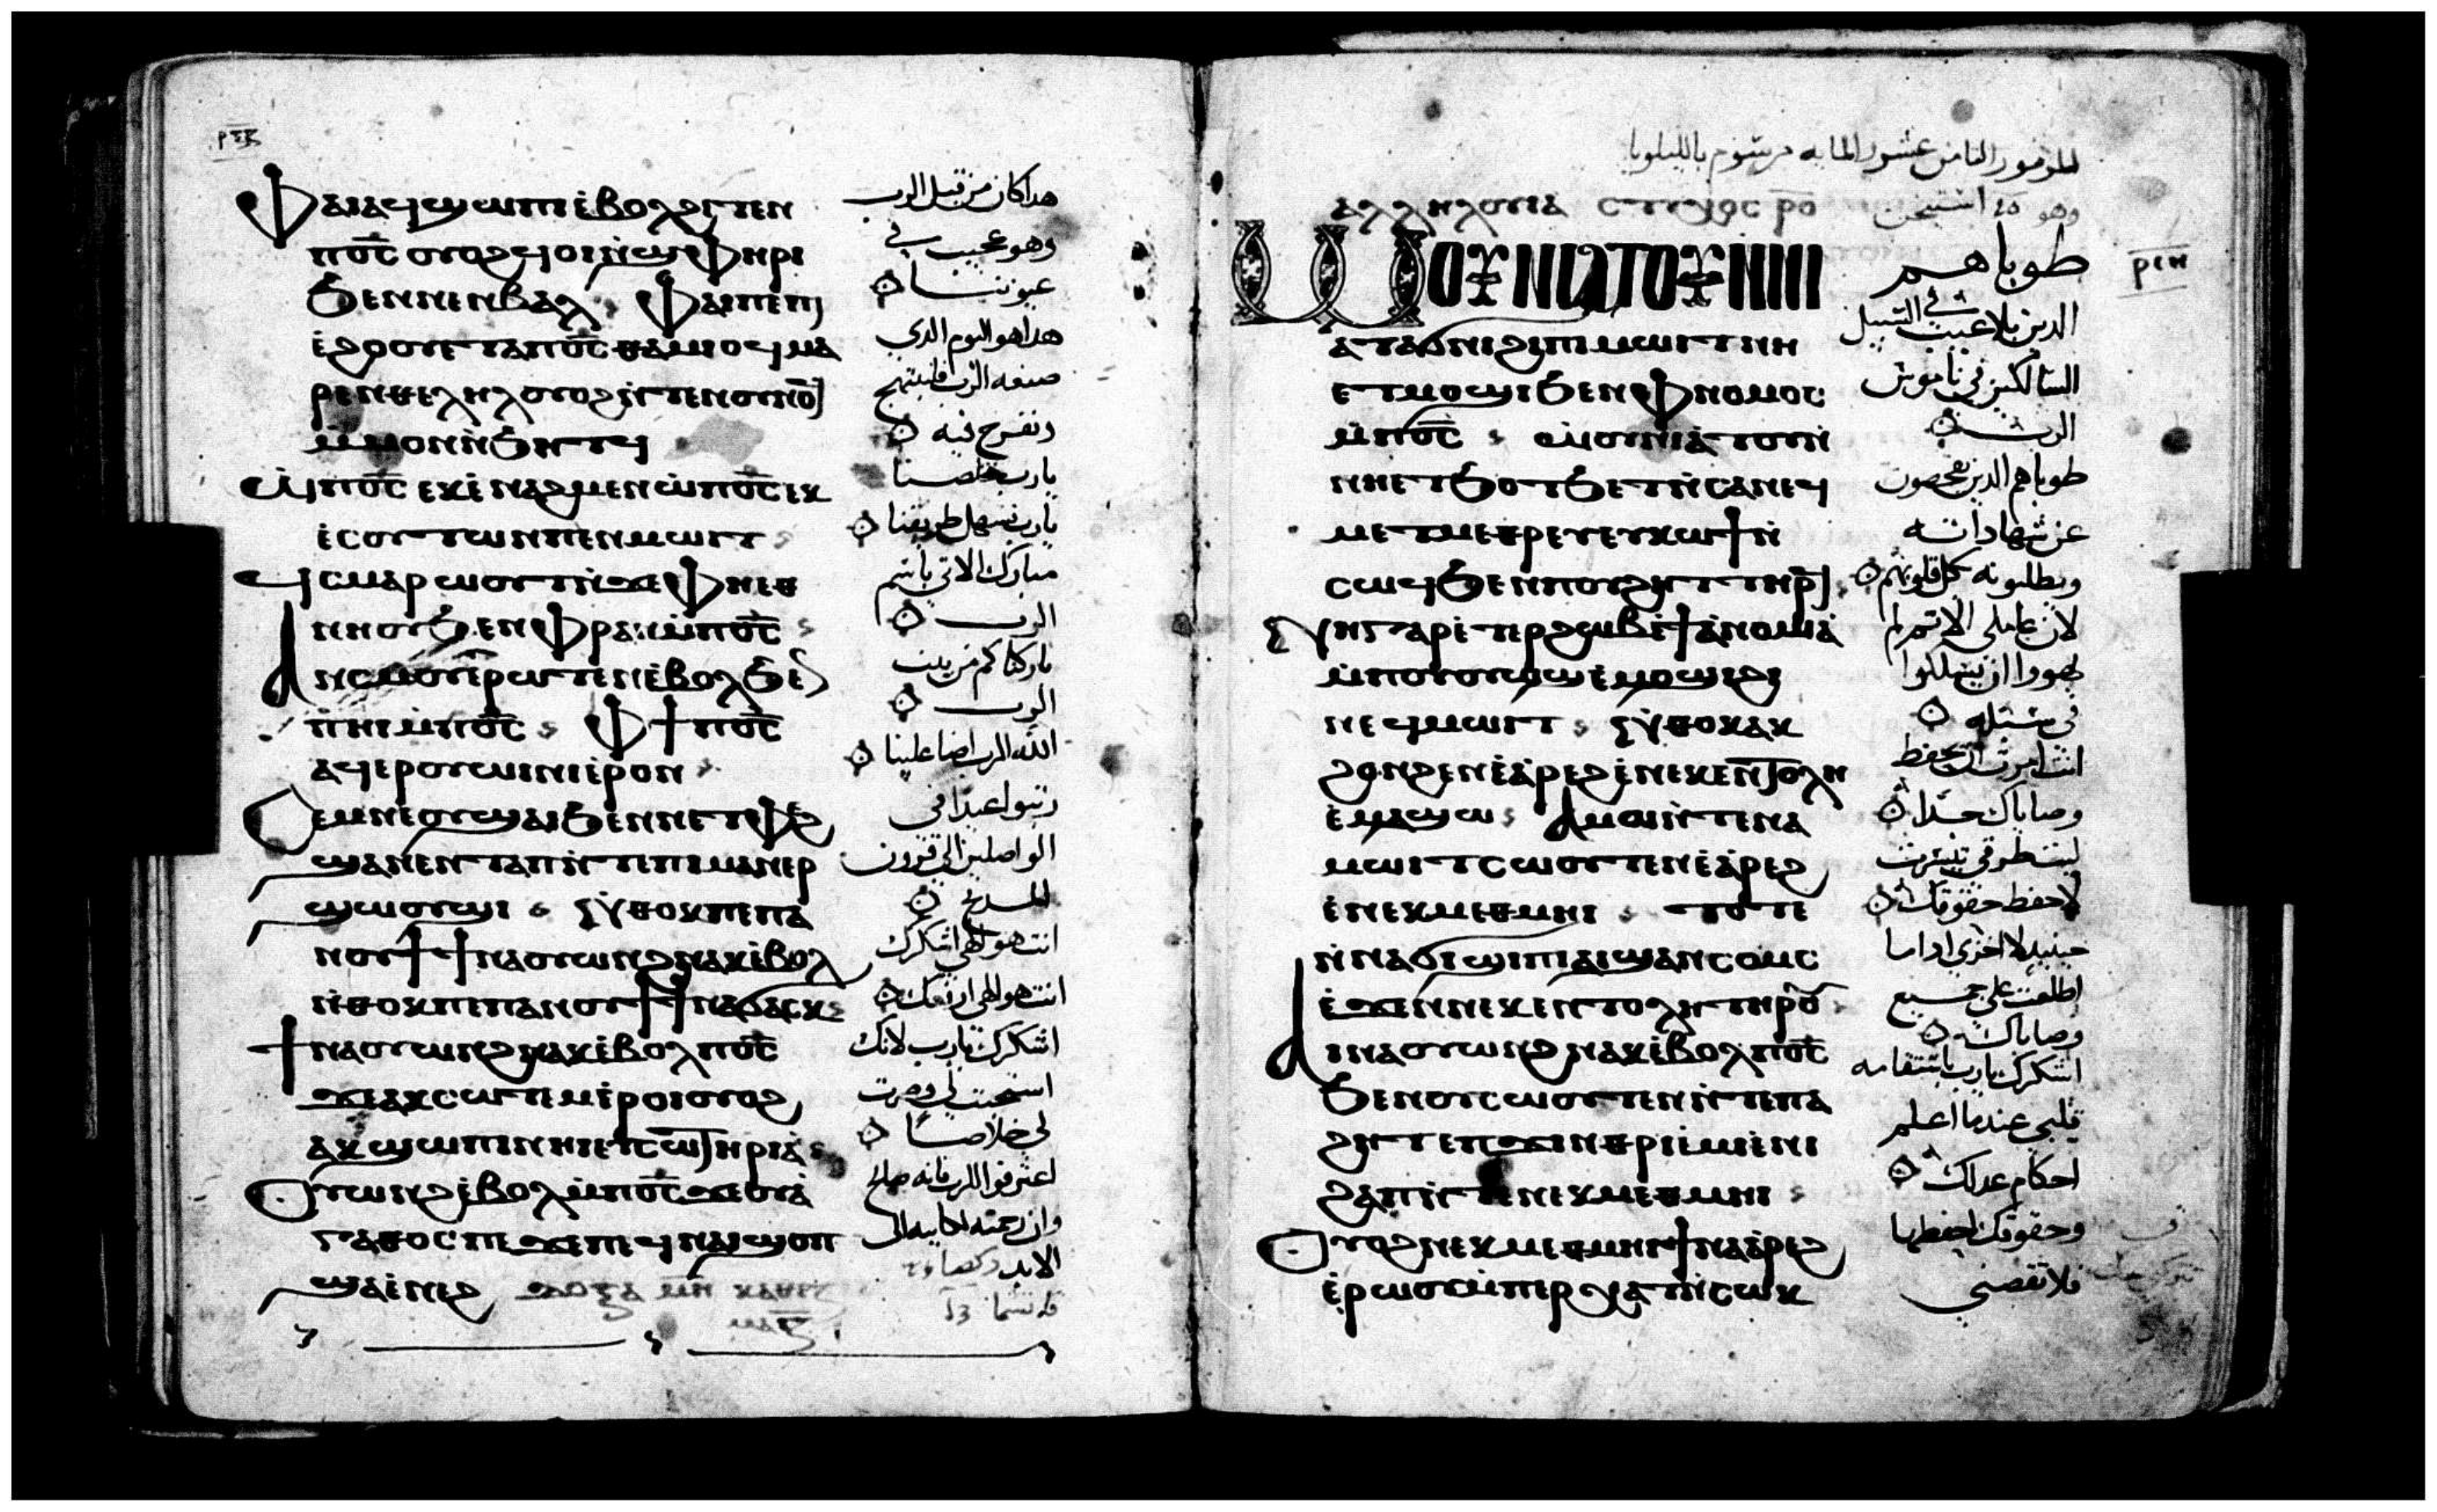 ⲫⲁⲓⲁϥϣⲱⲡⲓ ⲉⲃⲟⲗϩⲓⲧⲉⲛ
ⲡⲟ̅ⲥ̅ ⲟⲩⲟϩϥⲟⲓⲛ̀ϣⲫⲏⲣⲓ
ϧⲉⲛⲛⲉⲛⲃⲁⲗ ⲫⲁⲓⲡⲉⲡⲓ
ⲉ̀ϩⲟⲟⲩⲉⲧⲁⲡⲟ̅ⲥ̅ⲑⲁⲙⲓⲟϥ ⲙⲁ
ⲣⲉⲛⲑⲉⲗⲏⲗ ⲟⲩⲟϩⲛ̀ⲧⲉⲛⲟⲩⲛⲟϥ
ⲙ̀ⲙⲟⲛⲛ̀ϧⲏⲧϥ
ⲱ̀ⲡⲟ̅ⲥ̅ ⲉⲕⲉ̀ⲛⲁϩⲙⲉⲛ ⲱ̀ⲡⲟ̅ⲥ̅ ⲉⲕ
ⲉ̀ⲥⲟⲩⲧⲱⲛⲡⲉⲛⲙⲱⲓⲧ
ϥ̀ⲥⲙⲁⲣⲱⲟⲩⲧⲛ̀ϫⲉⲫⲏⲉⲑ
ⲛⲏⲟⲩϧⲉⲛⲫⲣⲁⲛⲙ̀ⲡⲟ̅ⲥ̅
ⲁⲛⲥⲙⲟⲩⲉ̀ⲣⲱⲧⲉⲛⲉ̀ⲃⲟⲗϧⲉⲛ
ⲡⲏⲓⲙ̀ⲡⲟ̅ⲥ̅ ⲫϯ ⲡⲟ̅ⲥ̅
ⲁϥⲉⲣⲟⲩⲱⲓⲛⲓⲉ̀ⲣⲟⲛ
ⲥⲉⲙⲛⲉⲟⲩϣⲁⲓϧⲉⲛⲛⲉⲧⲫⲉϩ
ϣⲁⲛⲉⲛⲧⲁⲡⲛ̀ⲧⲉⲡⲓⲙⲁⲛⲉⲣ
ϣⲱⲟⲩϣⲓ ⲛ̀ⲑⲟⲕⲡⲉⲡⲁ
ⲛⲟⲩϯ ϯⲛⲁⲟⲩⲱⲛϩⲛⲁⲕⲉ̀ⲃⲟⲗ
ⲛ̀ⲑⲟⲕⲡⲉⲡⲁⲛⲟⲩϯ ϯⲛⲁϭⲁⲥⲕ
ϯⲛⲁⲟⲩⲱⲛϩⲛⲁⲕⲉ̀ⲃⲟⲗⲡⲟ̅ⲥ̅
ϫⲉⲁⲕⲥⲱⲧⲉⲙⲉ̀ⲣⲟⲓⲟⲩⲟϩ
ⲁⲕϣⲱⲡⲓⲛⲏⲓⲉⲩⲥⲱⲧⲏⲣⲓⲁ̀
ⲟⲩⲱⲛϩⲉ̀ⲃⲟⲗⲙ̀ⲡⲟ̅ⲥ̅ϫⲉⲟⲩⲁ̀
ⲅⲁⲑⲟⲥⲡⲉ ϫⲉⲡⲉϥⲛⲁⲓϣⲟⲡ
ϣⲁⲉ̀ⲛⲉϩ
هداكان من قبل الرب
وهو عجيب في
عيوننا
هداهو اليوم الدي
صنعه الرب فلنبتهج
ونفرح فيه
يارب خلصنا
يارب تسهل طريقنا
مبارك الاتي باسم
الرب
باركناكم من بيت
الرب
الله الرب اضا علينا
رتبوا عيدا في
الواصلين الي قرون
المدبح
انت هو الهي اشكرك
انت هو الهي ارفعك
اشكرك يارب لانك
استجبت لي وصرت
لي خلاصا
اعترفوا للرب فانه صالح
وان رحمته كاينه الي
الابد
المزمور الثامن عشر والمايه مرسوم بالليلويا
ⲁⲗⲗⲏⲗⲟⲩⲓⲁ ⲥⲧⲩⲭⲟⲥ ⲣ̅ⲟ̅
ⲣ̅ⲓ̅ⲏ̅
ⲱⲟⲩⲛⲓⲁⲧⲟⲩⲛⲛⲓ
ⲁⲧⲁϭⲛⲓϩⲓⲡⲓⲙⲱⲓⲧⲛⲏ
ⲉⲧⲙⲟϣⲓϧⲉⲛⲫⲛⲟⲙⲟⲥ
ⲙ̀ⲡⲟ̅ⲥ̅ ⲱⲟⲩⲛⲓⲁ̀ⲧⲟⲩⲛ̀
ⲛⲏⲉⲧϧⲟⲧϧⲉⲧⲛ̀ⲥⲁⲛⲉϥ
ⲙⲉⲧⲙⲉⲑⲣⲉⲩⲉⲩⲕⲱϯⲛ̀
ⲥⲱϥϧⲉⲛⲡⲟⲩϩⲏⲧⲧⲏⲣϥ
ⲛⲏⲅⲁⲣⲉ̀ⲧⲉⲣϩⲱⲃⲉ̀ϯⲁⲛⲟⲙⲓⲁ̀
ⲙ̀ⲡⲟⲩⲟⲩⲱϣⲉ̀ⲙⲟϣⲓϩⲓ
ⲛⲉϥⲙⲱⲓⲧ ⲛ̀ⲑⲟⲕⲁⲕ
ϩⲟⲛϩⲉⲛⲉ̀ⲁ̀ⲣⲉϩⲉ̀ⲛⲉⲕⲉⲛⲧⲟⲗⲏ
ⲉ̀ⲙⲁϣⲱ ⲁⲙⲟⲓⲛ̀ⲧⲉⲛⲁ
ⲙⲱⲓⲧⲥⲱⲟⲩⲧⲉⲛⲉ̀ⲁ̀ⲣⲉϩ
ⲉ̀ⲛⲉⲕⲙⲉⲑⲙⲏⲓ ⲧⲟⲧⲉ
ⲛ̀ⲛⲁϭⲓϣⲓⲡⲓⲁⲓϣⲁⲛⲥⲟⲙⲥ
ⲉ̀ϫⲉⲛⲛⲉⲕⲉⲛⲧⲟⲗⲏⲧⲏⲣⲟⲩ
ⲁⲓⲛⲁⲟⲩⲱⲛϩⲛⲁⲕⲉ̀ⲃⲟⲗⲡⲟ̅ⲥ̅
ϧⲉⲛⲟⲩⲥⲱⲟⲩⲧⲉⲛⲛ̀ⲧⲉⲡⲁ
ϩⲏⲧⲉⲡϫⲓⲛⲑⲣⲓⲉ̀ⲙⲓⲉ̀ⲛⲓ
ϩⲁⲡⲛ̀ⲧⲉⲛⲉⲕⲙⲉⲑⲙⲏⲓ
ⲟⲩⲟϩⲛⲉⲕⲙⲉⲑⲙⲏⲓϯⲛⲁⲁ̀ⲣⲉϩ
ⲉ̀ⲣⲱⲟⲩⲙ̀ⲡⲉⲣⲭⲁⲧⲛ̀ⲥⲱⲕ
طوباهم
الدين بلا عيب في السبيل
السالكين في ناموس
الرب
طوباهم الدين يفحصون
عن شهاداته
ويطلبونه بكل قلوبهم
لان عاملي الاتم لم
يهووا ان يسلكوا
في سبله
انت امرت ان تحفظ
وصاياك جدا
ليت طرقي تستقيم
لاحفظ حقوقك
حينيد لا اخزي ادا ما
اطلعت علي جميع
وصاياك
اشكرك يارب باستقامه
قلبي عندما اعلم
احكام عدلك
وحقوقك احفظها
فلا تقصني